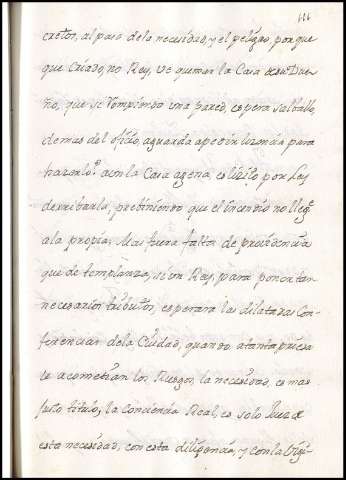 111
cretos, al paso de la necesidad, y el peligro, porque
que Criado, no Rey, ve quemar la Casa de su Due-
ño, que si rompiendo una pared, espera salballo,
demas del oficio, aguarda a pedir lizencia para
hazerlo? aun la Casa agena, es lizito por Ley
derribarla, prebiniendo que el incendio no lleg.
a la propia; Mas fuera falta de providencia
que de templanza, si un Rey, para poner tan
necesarios tributos, esperara las dilatadas Con-
ferencias de la Ciudad, quando a tanta priesa
le acometian los Riesgos, la necesidad, es mas
justo titulo, la Conciencia Real, es solo Juez de
esta necesidad, con esta diligencia, y con la Vigi-